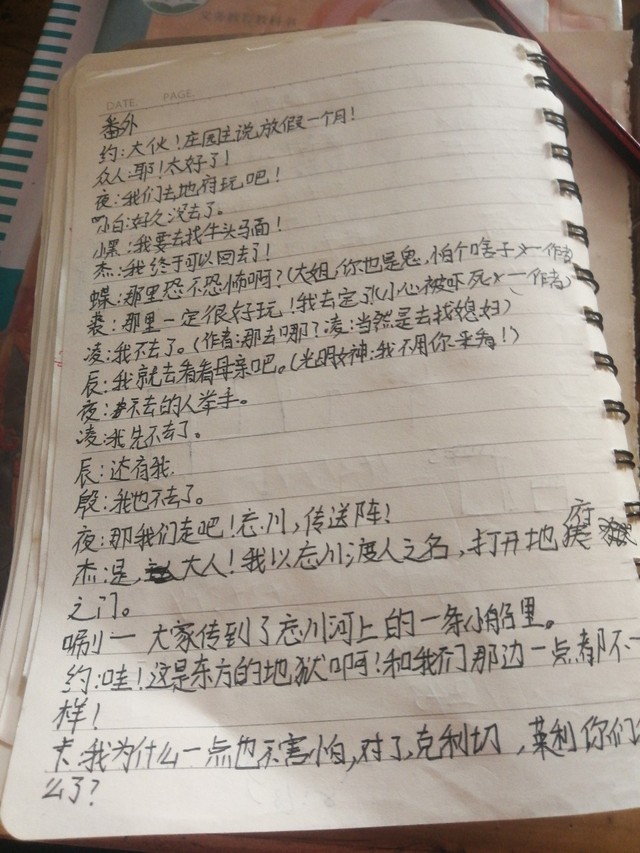 义务教育教科书
DATE. PAGE.
番外
约:大伙!庄园主说放假一个月!
众人:耶!太好了!
夜:我们去地府玩吧!
小白:好久没去了。
小黑:我要去找牛头马面!
杰:我终于可以回去了!
蝶:那里恐不恐怖啊?(大姐,你也是鬼,怕个啥子×一作者)
裘:那里一定很好玩!我去定了(小心被吓死×一作者)
凌:我不去了。(作者:那去哪?凌:当然是去找媳妇)
辰:我就去看看母亲吧。(光明女神:我不用你来看!)
夜:不去的人举手。
凌:我先不去了。
辰:还有我.
殷:我也不去了。
夜:那我们走吧!忘川,传送阵!
杰:是,大人!我以忘川渡人之名,打开地府
之门。
唰一 大家传到了忘川河上的一条小船里。
约:哇!这是东方的地狱啊!和我们那边一点都不一
样!
卡:我为什么一点也不害怕,对了,克利切,莱利你们
么了?